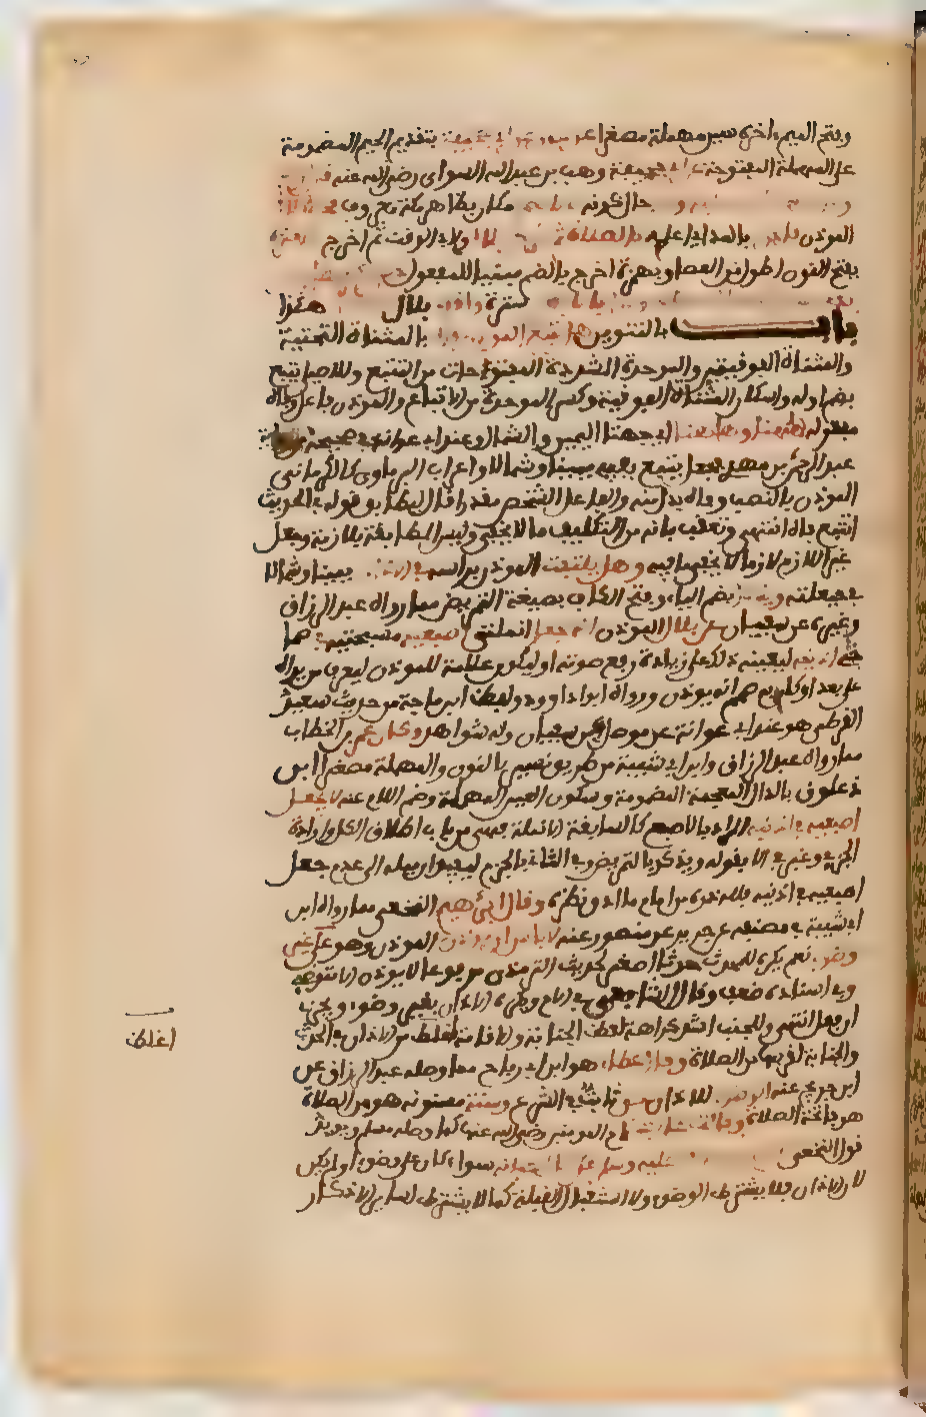 وفتح الميم اخره سين مهملة مصغرا عن عون بن ابي جحيفة بتقديم الجيم المضمومة
على المهملة المفتوحة ابي جحيفة وهب بن عبد الله السواى رضي الله عنه
حال كونه مكان بظاهر مكة معروف
المؤذن بالمد اى اعلمه بالصلاة بلال ولابي الوقت ثم اخرج
بفتح النون اطول من العصا وبهمزة اخرج بالضم مبنيا للمفعول
سترة بلال هذا
باب بالتنوين هل يتتبع المؤذن بالمثناة التحتية
والمثناة الفوقيتين والموحدة المشددة المفتوحات من التتبع وللاصيلي يتبع
بضم اوله واسكان المثناة الفوقية وكسر الموحدة من الاتباع والمؤذن فاعل وفاه
مفعوله ههنا وههنا اى جهتا اليمين والشمال وعند ابي عوانة في صحيحه
عبد الرحمن بن مهدي فجعل يتتبع بفيه يمينا وشمالا واعراب البرماوي كالكرماني
المؤذن بالنصب وفاه بدل منه والفاعل الشخص مقدرا قال ليطابق قوله في الحديث
اتتبع فاه انتهى وتعقب بانه من التكليف ما لا يخفى وليس المطابقة بلازمة وجعل
غير اللازم لازما لا يخفى ما فيه وهل يلتفت المؤذن براسه في الاذان يمينا وشمالا
في حيعلتيه ويذكر بضم الياء وفتح الكاف بصيغة التمريض مما رواه عبد الرزاق
وغيره عن سفيان عن بلال المؤذن انه جعل انملتي اصبعيه مسبحتيه في صماخي
اذنيه ليعينه ذلك على زيادة رفع صوته او ليكون علامة للمؤذن ليعرف من يراه
على بعد او كان به صمم انه يؤذن ورواه ابو داوود ولفظ ابن ماجة من حديث سعد
القرظ هو عند ابي عوانة عن مومل عن سفيان وله شواهد وكان عمر بن الخطاب
مما رواه عبد الرزاق وابن ابي شيبة من طريق نسير بالنون والمهملة مصغرا ابن
ذعلوق بالذال المعجمة المضمومة وسكون العين المهملة وضم اللام عنه لا يجعل
اصبعيه في اذنيه المراد بالاصبع كالسابقة الانملة فهو من باب اطلاق الكل وارادة
الجزء وعبر في الاول بقوله ويذكر بالتمريض وفي الثاني بالجزم ليفيد ان ميله الى عدم جعل
اصبعيه في اذنيه فلله دره من امام ما ادق نظره وقال ابراهيم النخعي مما رواه ابن
ابي شيبة في مصنفه عن جرير عن منصور عنه لا باس ان يؤذن المؤذن وهو على غير
وضوء نعم يكره للمحدث حدثا اصغر لحديث الترمذي مرفوعا لا يؤذن الا متوضئ
وفي اسناده ضعف وقال الشافعي في الام ويكره الاذان بغير وضوء ويجزي
ان فعل انتهى وللجنب اشد كراهة لغلظ الجنابة والاقامة اغلظ من الاذان في الحدث
والجنابة لقربها من الصلاة وقال عطاء هو ابن ابي رباح مما وصله عبد الرزاق عن
ابن جريج عنه الوضوء للاذان حق ثابت في الشرع وسنة مسنونة هو من الصلاة
هو فاتحة الصلاة وقالت عائشة ام المؤمنين رضي الله عنها كما وصله مسلم ويؤيد
قول النخعي عليه وسلم احيانه سواء كان على وضوء او لم يكن
لان الاذان فلا يشترط له الوضوء ولا استقبال القبلة كما لا يشترط لسائر الاذكار
اغلظ